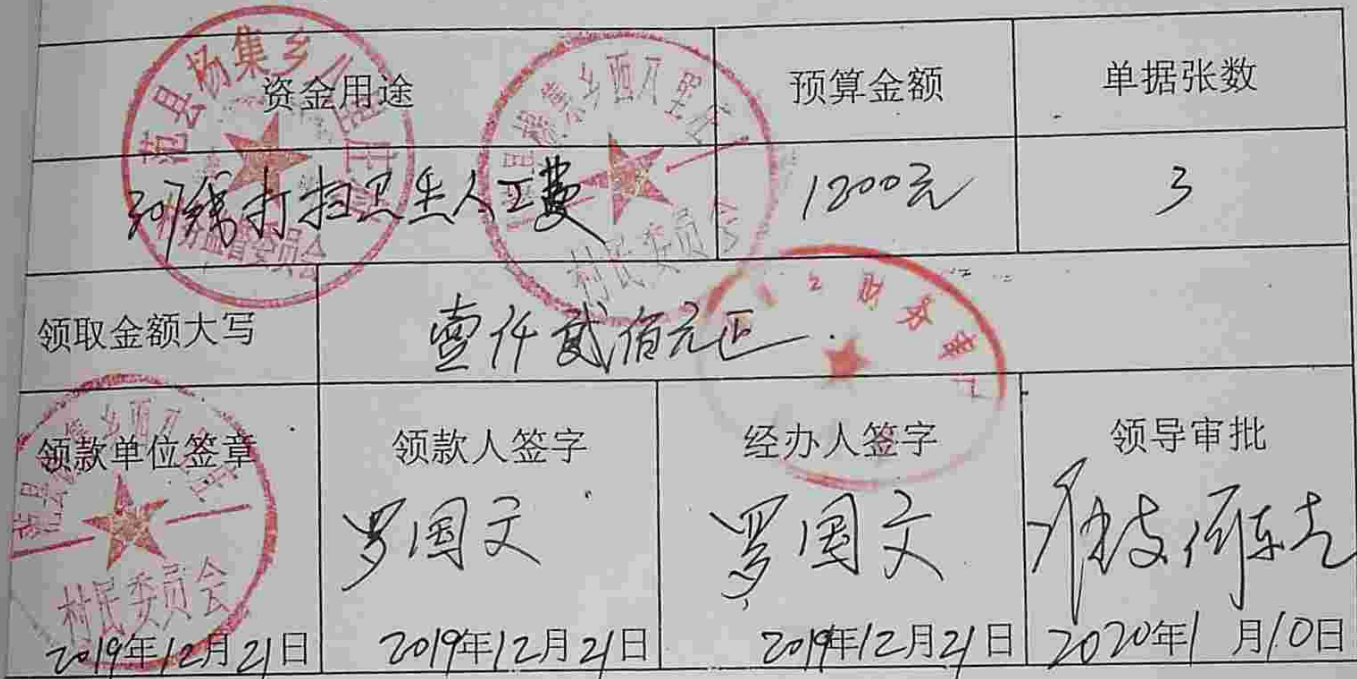 资金用途 预算金额 单据张数
打扫卫生人工费 1200元 3
领取金额大写 壹仟贰佰元正
领款单位签章 领款人签字 经办人签字 领导审批
罗国文 罗国文
2019年12月21日 2019年12月21日 2019年12月21日 2020年1月10日
范县杨集乡
村务监督委员会
村民委员会
村民委员会
财务专